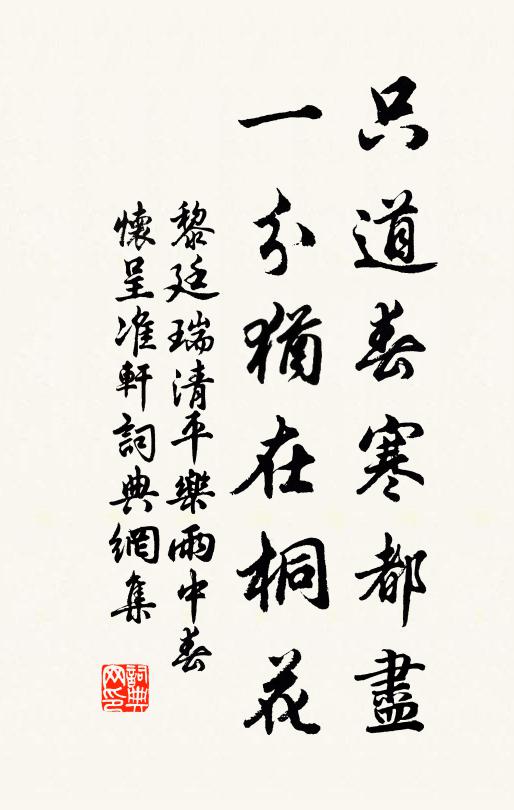 只道春寒都盡
一分猶在桐花
黎廷瑞清平樂雨中春
懷呈准軒詞典網集
詞典
网印